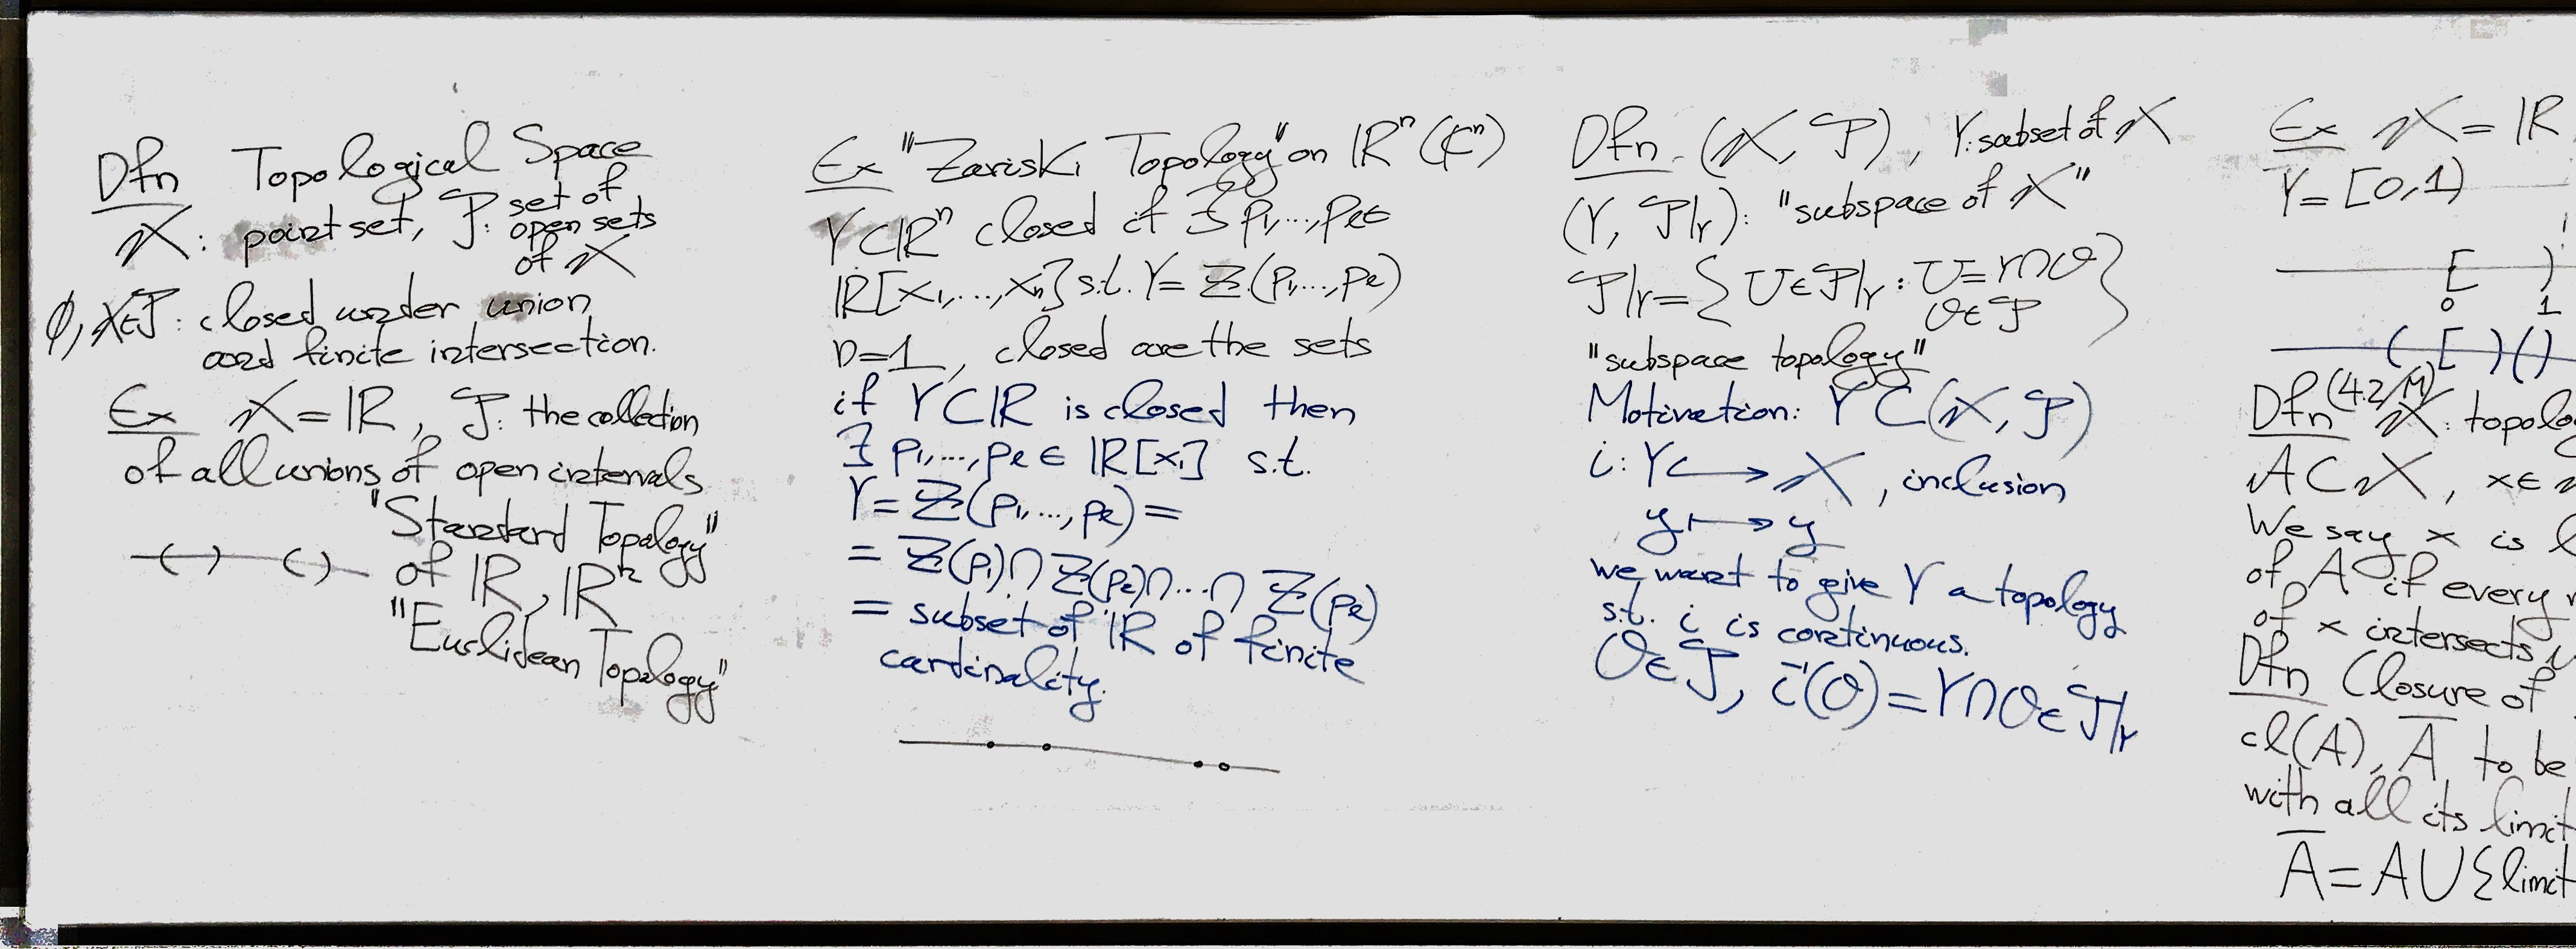 Dfn Topological Space
X: point set, 𝒯: set of open sets of X
∅, X∈𝒯: closed under union
and finite intersection.
Ex X = ℝ, 𝒯: the collection
of all unions of open intervals
"Standard Topology"
of ℝ, ℝⁿ
"Euclidean Topology"
( ) ( )
Ex "Zariski Topology" on ℝⁿ (ℂⁿ)
Y⊂ℝⁿ closed if ∃ p₁,...,pₖ∈
ℝ[x₁,...,xₙ] s.t. Y = Z(p₁,...,pₖ)
n=1, closed are the sets
if Y⊂ℝ is closed then
∃ p₁,...,pₖ ∈ ℝ[x₁] s.t.
Y = Z(p₁,...,pₖ) =
= Z(p₁)∩Z(p₂)∩...∩Z(pₖ)
= subset of ℝ of finite
cardinality.
Dfn. (X, 𝒯), Y: subset of X
(Y, 𝒯|Y): "subspace of X"
𝒯|Y = { U∈𝒯|Y : U = Y∩O
O∈𝒯 }
"subspace topology"
Motivation: Y⊂(X, 𝒯)
i: Y ↪ X, inclusion
y ↦ y
we want to give Y a topology
s.t. i is continuous.
O∈𝒯, i⁻¹(O) = Y∩O∈𝒯|Y
Ex X = ℝ
Y = [0,1)
[ )
0 1
( [ ) ( )
Dfn (4.2/M) X: topolo
A⊂X, x∈
We say x is
of A if every
of x intersects
Dfn Closure of
cl(A), A̅ to be
with all its limit
A̅ = A∪{limit